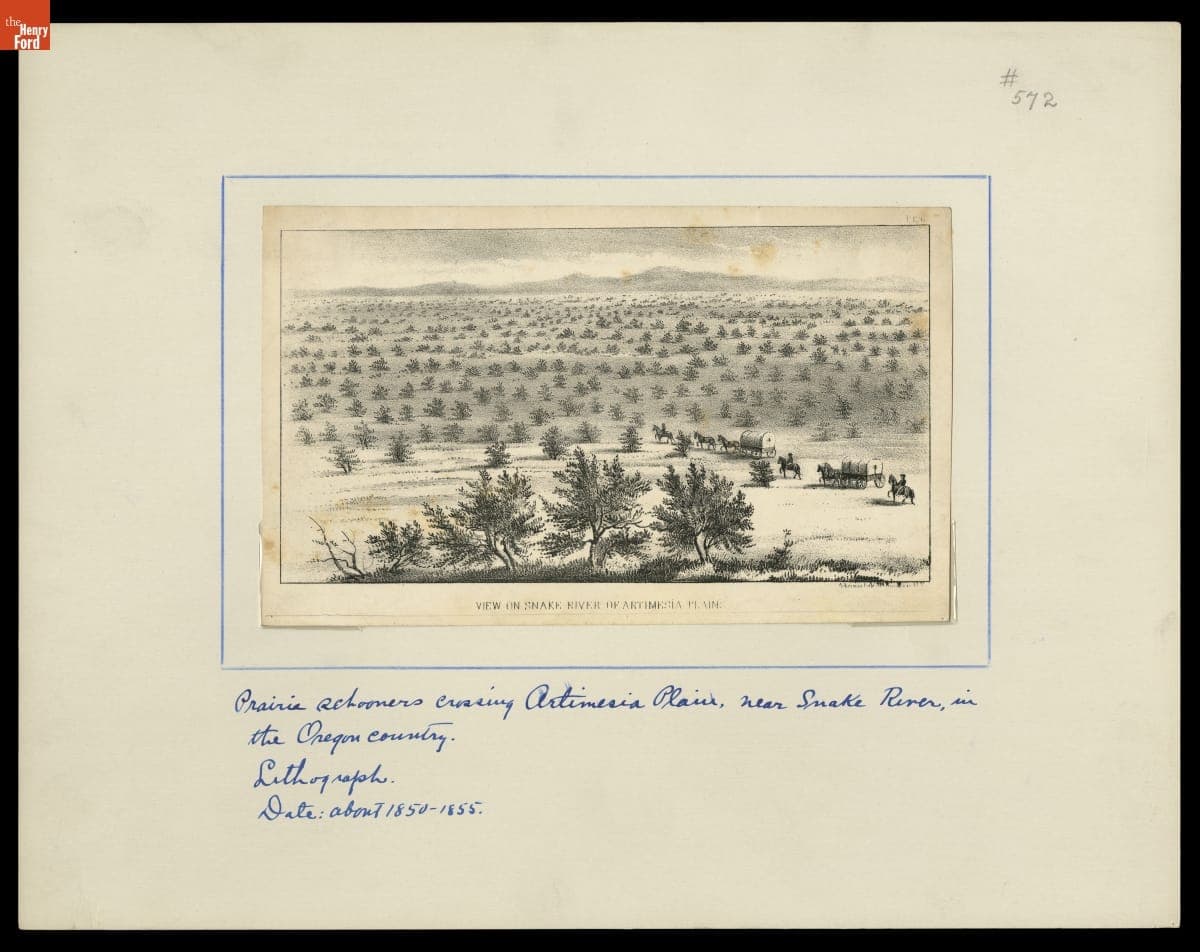 the
Henry
Ford
#
572
VIEW ON SNAKE RIVER OF ARTIMESIA PLAINS
Prairie schooners crossing Artimesia Plain, near Snake River, in
the Oregon country.
Lithograph.
Date: about 1850-1855.